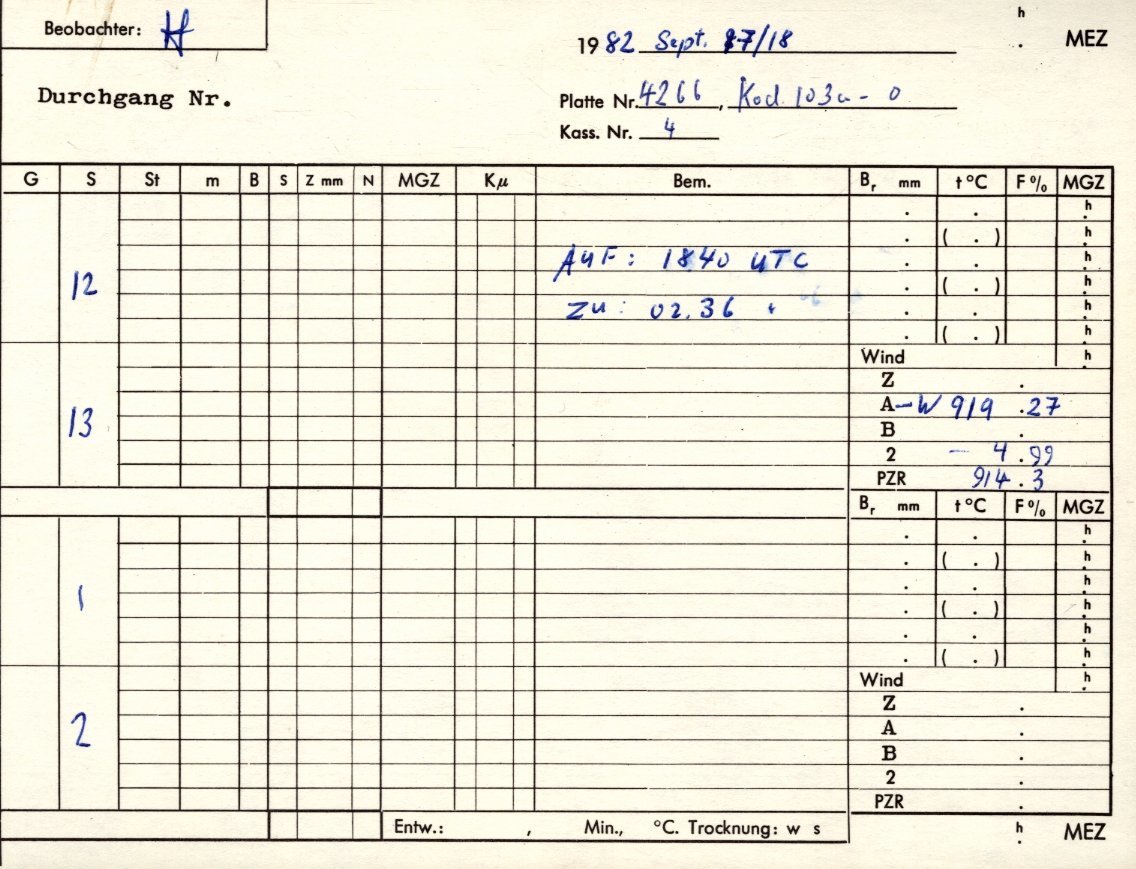 h
Beobachter: H
1982 Sept. 17/18 . MEZ
Durchgang Nr.
Platte Nr. 4266, Kod. 103a-0
Kass. Nr. 4
G S St m B S Z mm N MGZ Kµ Bem. Br mm t °C F % MGZ
. . h.
. ( . ) h.
AUF: 1840 UTC . . h.
12 . ( . ) h.
ZU: 02.36 . . h.
. ( . ) h.
Wind h.
Z .
A -W 919 .27
13
B .
2 - 4 .99
PZR 914 .3
Br mm t °C F % MGZ
. . h.
. ( . ) h.
. . h.
1 . ( . ) h.
. . h.
. ( . ) h.
Wind h.
Z .
2
A .
B .
2 .
PZR .
Entw.: , Min., °C. Trocknung: w s h. MEZ